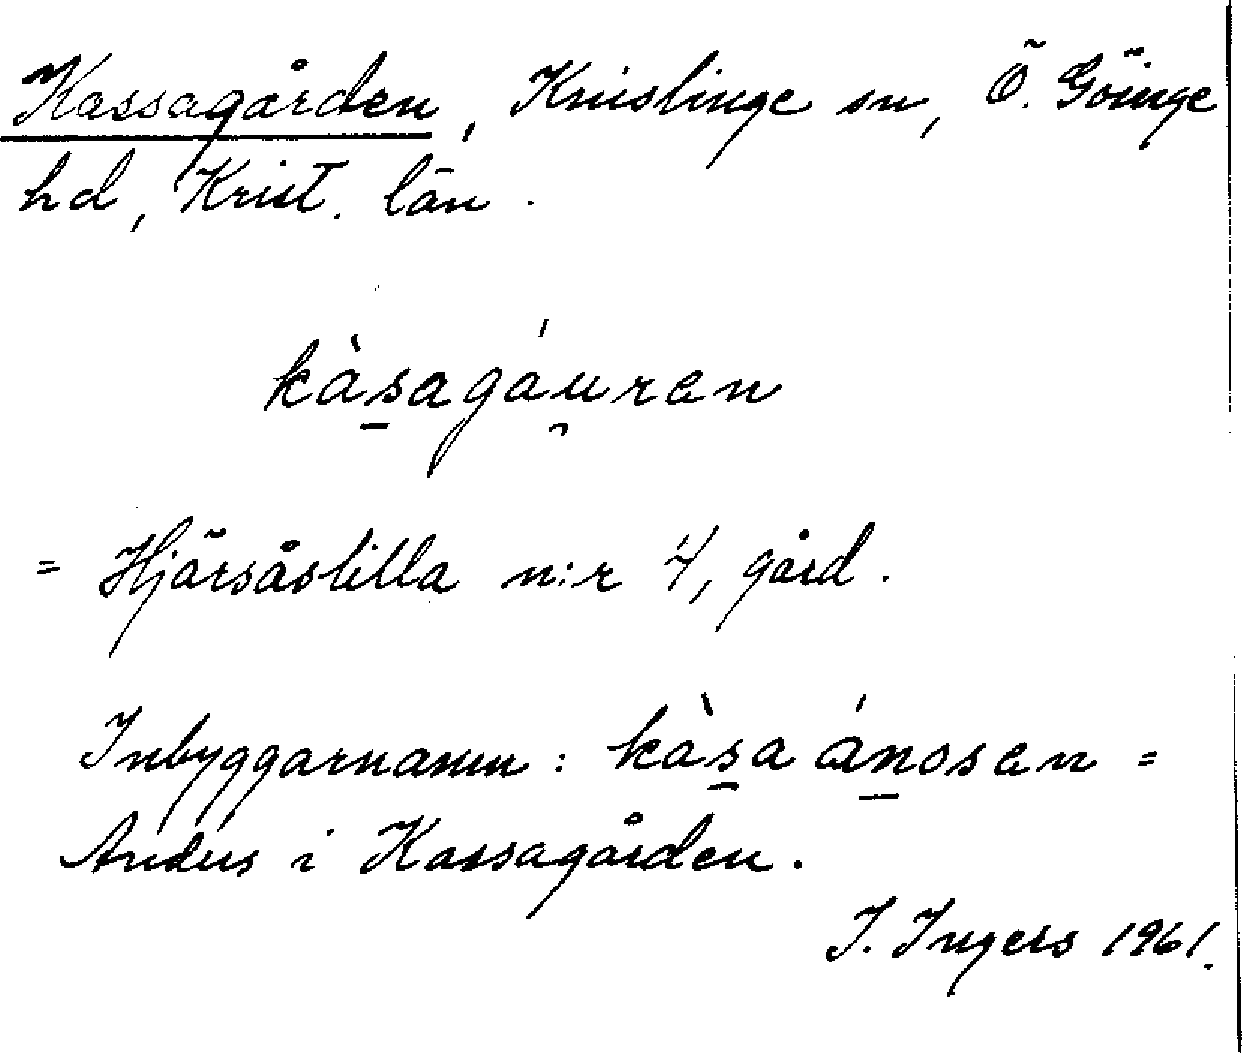 Kassagården, Knislinge sn, Ö. Göinge
hd, Krist. län.
kàs̱agáu̯ren
= Hjärsåslilla n:r 4, gård.
Inbyggarnamn: kàs̱a áṉosen =
Anders i Kassagården.
I. Ingers 1961.